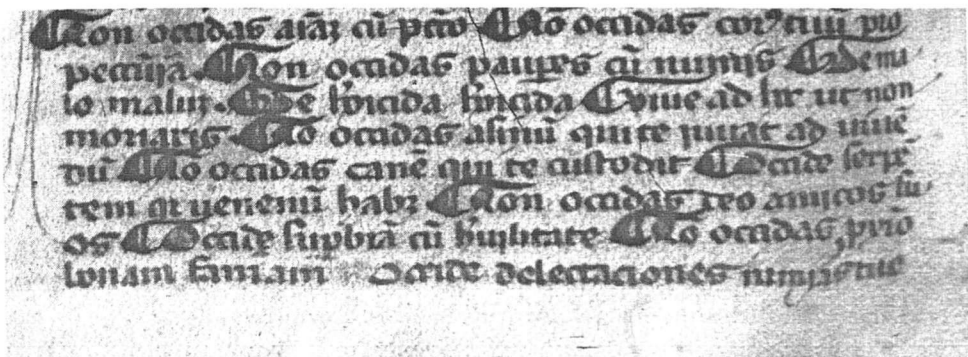 Non occidas aīaz cū pctō No occidas corꝰ tuū pro
pecunia Non occidas pauꝑes cū nimis De ma
lo malū De hoīcida hoīcida Viue ad hec ut non
moriaris No occidas asinū qui te iuuat ad uiuē
dū No occidas canē qui te custodit Occide serpē
tem qui uenenū habz Non occidas deo amicos su
os Occide supbiā cū huīlitate No occidas
bonam famam Occide delectaciones